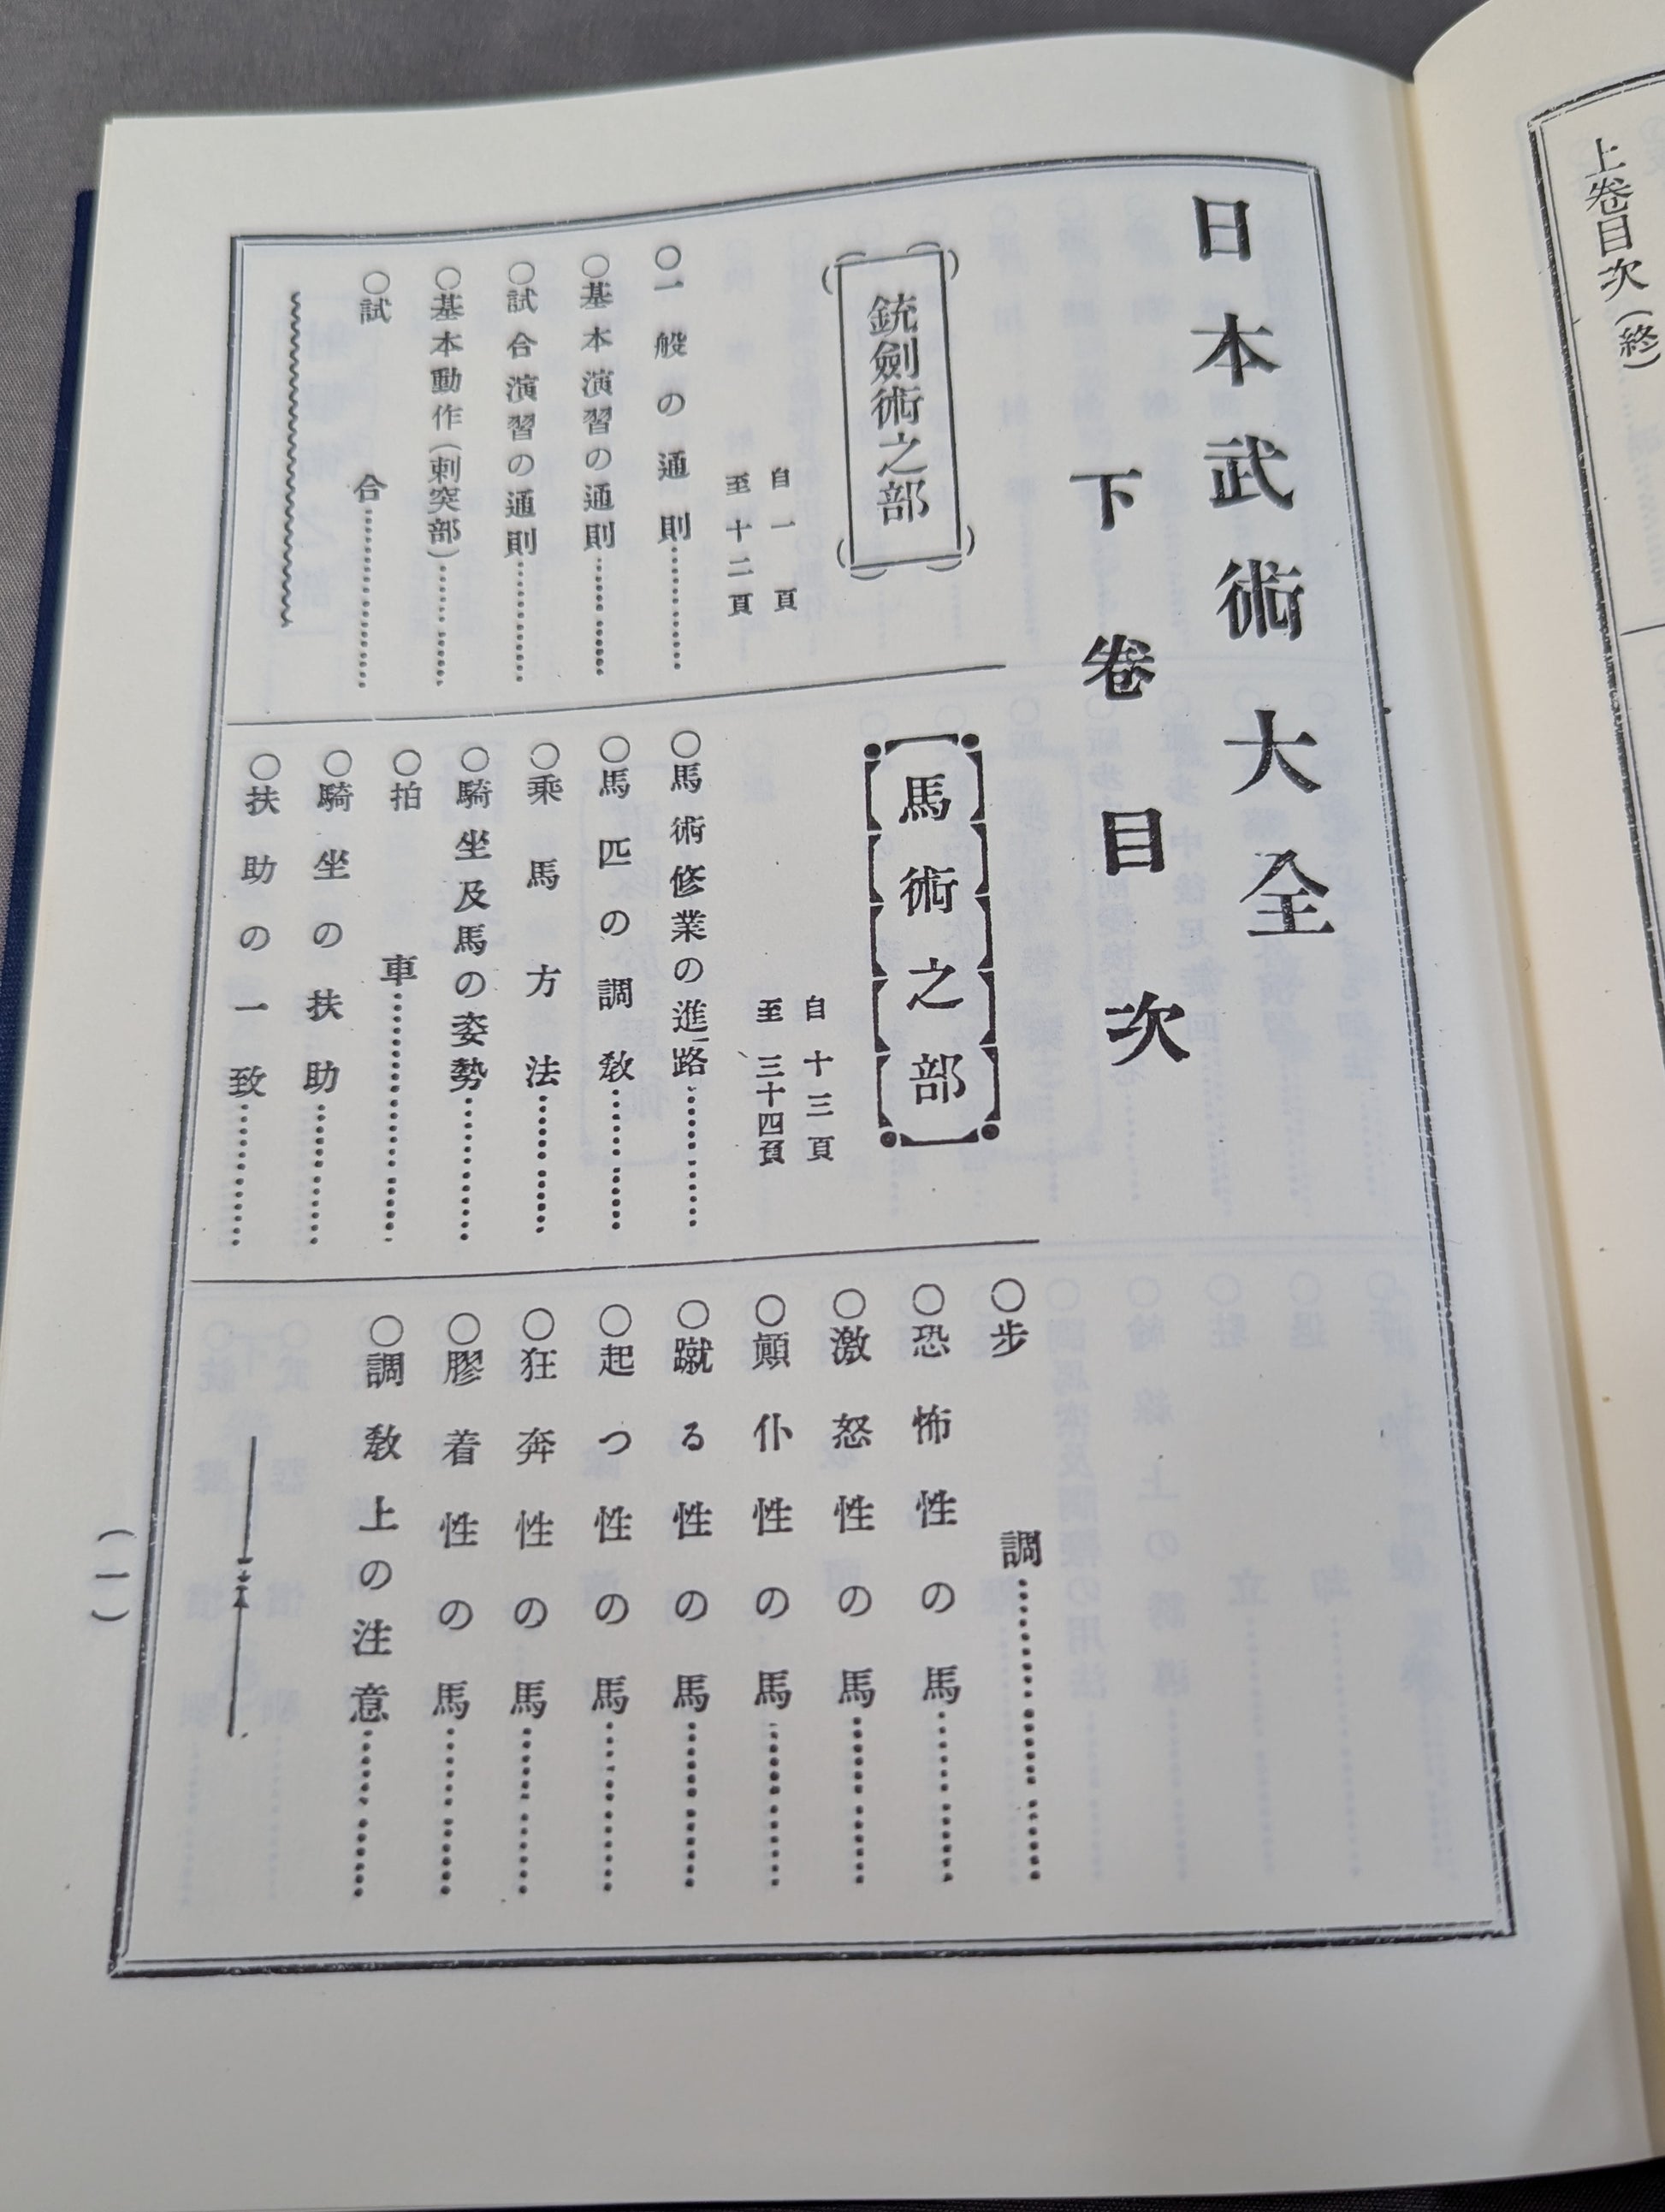 上卷目次（終）
日本武術大全
下卷目次
銃劍術之部
自一頁
至十二頁
〇一般の通則…………
〇基本演習の通則…………
〇試合演習の通則…………
〇基本動作（刺突部）…………
〇試合…………
馬術之部
自十三頁
至三十四頁
〇馬術修業の進路…………
〇馬匹の調敎…………
〇乘馬方法…………
〇騎坐及馬の姿勢…………
〇拍車…………
〇騎坐の扶助…………
〇扶助の一致…………
〇步調…………
〇恐怖性の馬…………
〇激怒性の馬…………
〇顚仆性の馬…………
〇蹴る性の馬…………
〇起つ性の馬…………
〇狂奔性の馬…………
〇膠着性の馬…………
〇調敎上の注意…………
（一）